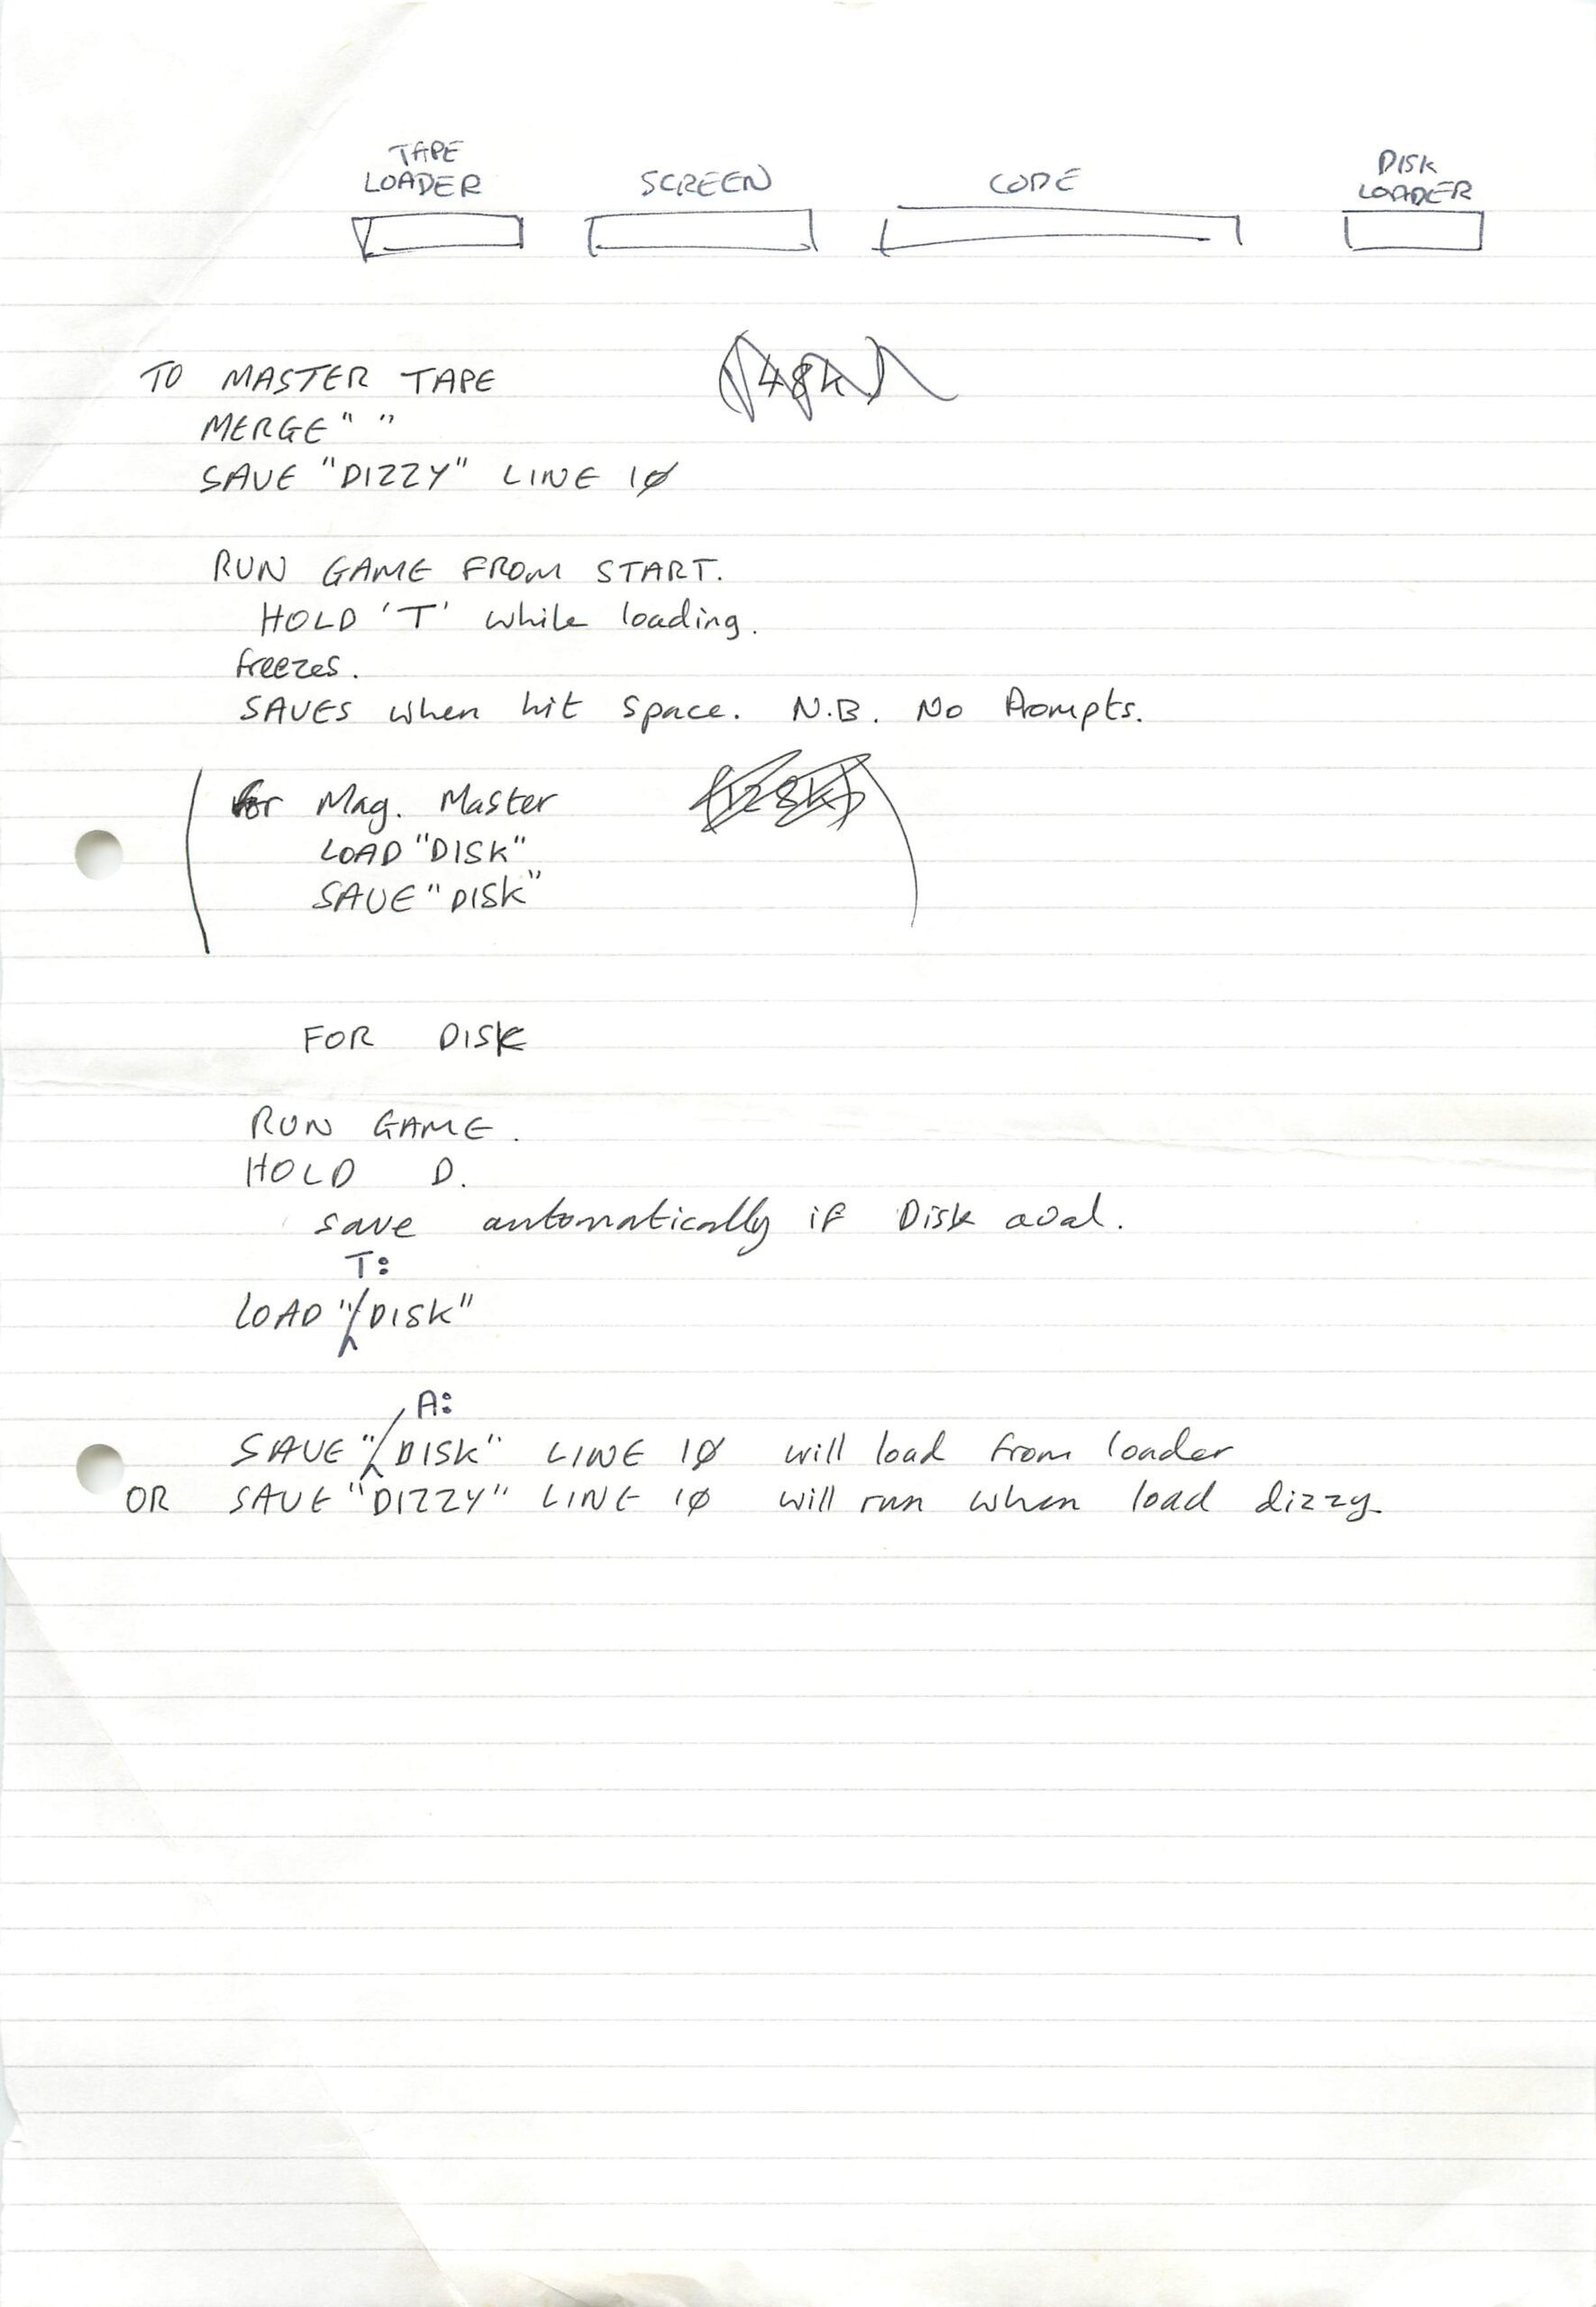 TAPE LOADER SCREEN CODE DISK LOADER
TO MASTER TAPE (48k)
MERGE" "
SAVE "DIZZY" LINE 10
RUN GAME FROM START.
HOLD 'T' while loading.
freezes.
SAVES when hit space. N.B. No Prompts.
for Mag. Master (128k)
LOAD "DISK"
SAVE "DISK"
FOR DISK
RUN GAME.
HOLD D.
save automatically if Disk aval.
T:
LOAD "DISK"
A:
SAVE "DISK" LINE 10 will load from loader
OR SAVE "DIZZY" LINE 10 will run when load dizzy.